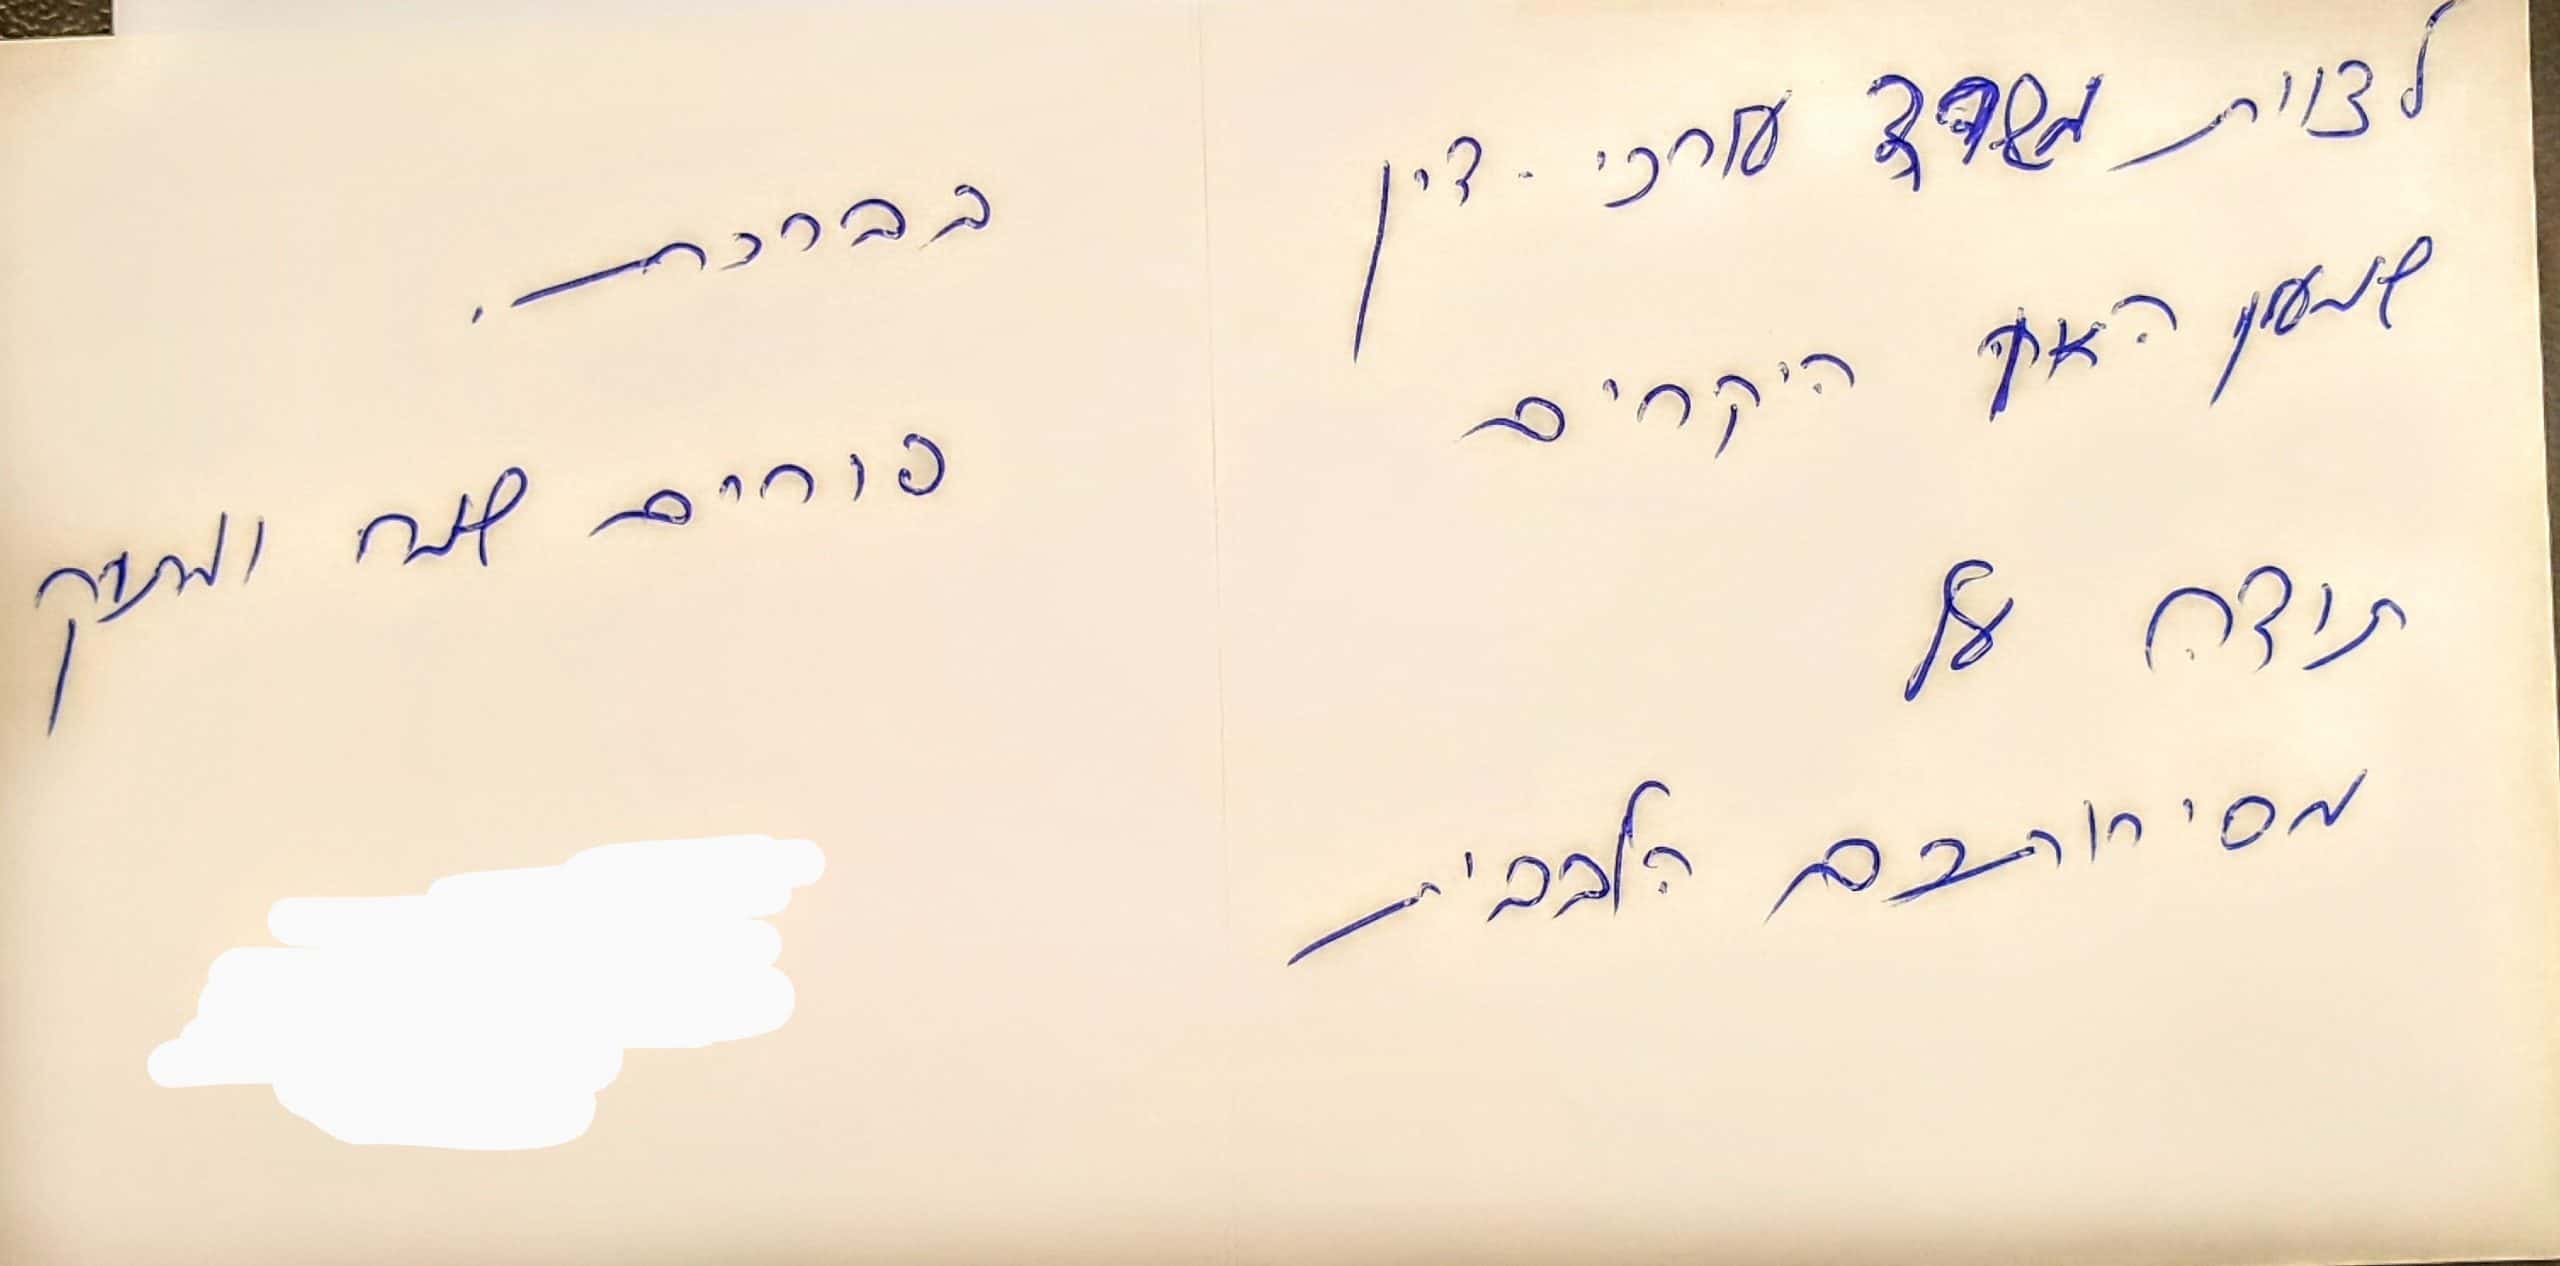 לצוות משרד עורכי-דין
שמעון האף היקרים
תודה על
מסירותכם הלבבית
בברכת.
פורים שמח ומתוק